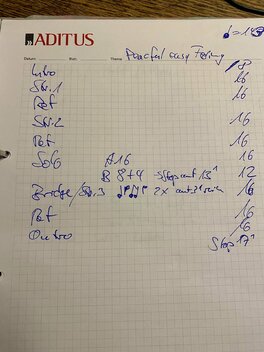 ADITUS ♩=1
Datum: Von: Thema: Peaceful easy Feeling
Intro 8
Str. 1 16
Ref 16
Str. 2 16
Ref 16
Solo A 16 16
B 8+4 Stop auf 13' 12
Bridge/Str. 3 2x 16
Ref 16
Outro 16
Stop 17'